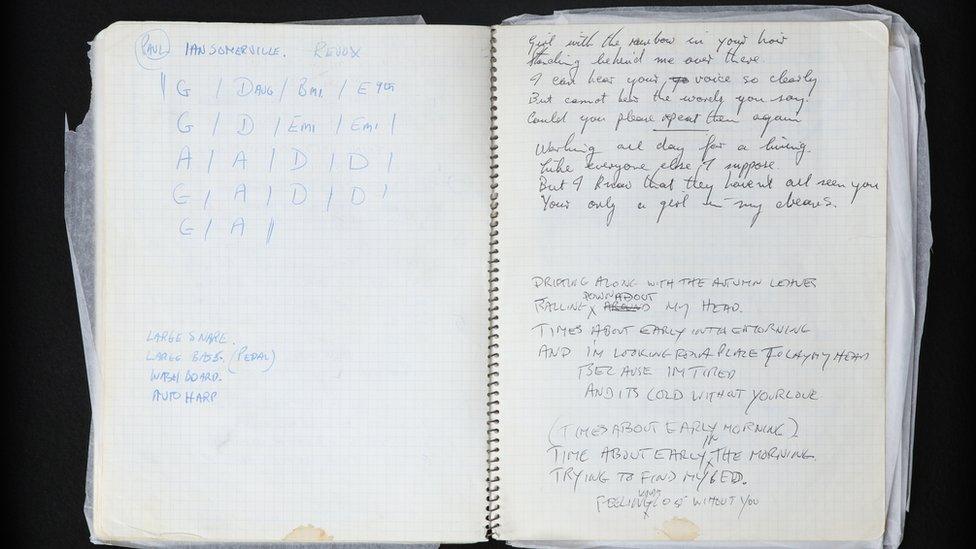 PAUL IAN SOMERVILLE. REVOX
|| G / DAUG / Bmi / E 9th
G / D / EMI / EMI |
A / A / D / D |
G / A / D / D |
G / A ||
LARGE SNARE.
LARGE BASS. (PEDAL)
WASH BOARD.
AUTO HARP
Girl with the rainbow in your hair
Standing behind me over there.
I can hear your voice so clearly
But cannot hear the words you say.
Could you please repeat them again
Working all day for a living.
Like everyone else I suppose.
But I know that they haven't all seen you
Your only a girl in my dreams.
DRIFTING ALONG WITH THE AUTUMN LEAVES
FALLING DOWN ABOUT AROUND MY HEAD.
TIMES ABOUT EARLY IN THE MORNING
AND I'M LOOKING FOR A PLACE TO LAY MY HEAD
BECAUSE I'M TIRED
AND ITS COLD WITHOUT YOUR LOVE
(TIMES ABOUT EARLY MORNING)
TIME ABOUT EARLY IN THE MORNING.
TRYING TO FIND MY BED.
FEELING LOST WITHOUT YOU